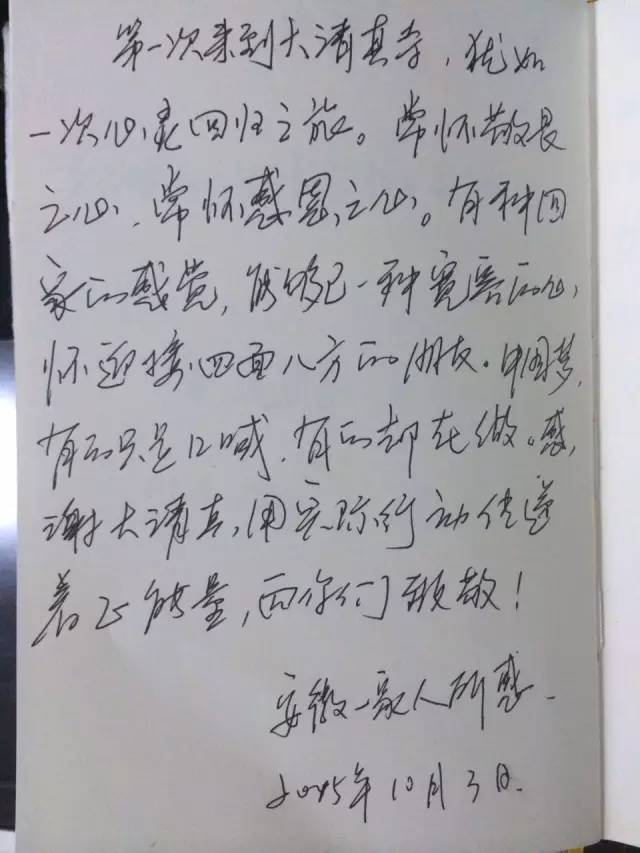 第一次来到大清真寺，犹如
一次心灵回归之旅。常怀敬畏
之心，常怀感恩之心。有种回
家的感觉，能够已一种宽容的心
怀迎接四面八方的朋友。中国梦，
有的只是口喊，有的却在做。感
谢大清真，用实际行动传递
着正能量，向你们致敬！
安徽一家人所感
2015年10月3日